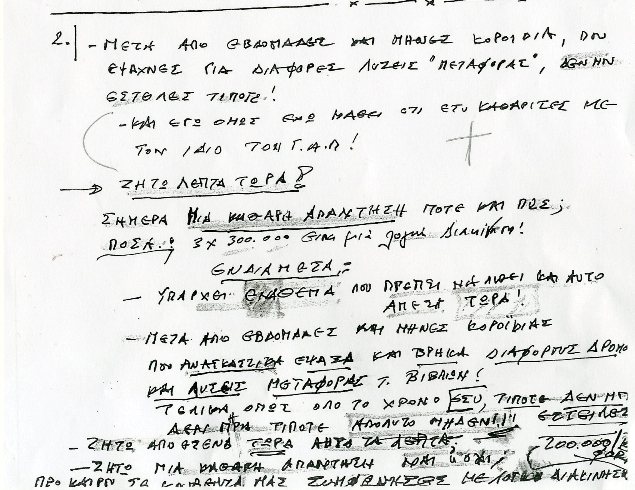 2. - ΜΕΤΑ ΑΠΟ ΕΒΔΟΜΑΔΕΣ ΚΑΙ ΜΗΝΕΣ ΚΟΡΟΪΔΙΑ, ΠΟΥ
ΕΨΑΧΝΕΣ ΓΙΑ ΔΙΑΦΟΡΕΣ ΛΥΣΕΙΣ "ΜΕΤΑΦΟΡΑΣ", ΔΕΝ ΜΗ
ΕΣΤΕΙΛΕΣ ΤΙΠΟΤΕ!
- ΚΑΙ ΕΓΩ ΟΜΩΣ ΕΧΩ ΜΑΘΕΙ ΟΤΙ ΕΣΥ ΚΑΘΑΡΙΣΕΣ ΜΕ
ΤΟΝ ΙΔΙΟ ΤΟΝ Γ.Α.Π!
→ ΖΗΤΩ ΛΕΠΤΑ ΤΩΡΑ!
ΣΗΜΕΡΑ ΜΙΑ ΚΑΘΑΡΗ ΑΠΑΝΤΗΣΗ ΠΟΤΕ ΚΑΙ ΠΩΣ;
ΠΟΣΑ: 3 Χ 300.000 Είναι μιά λογική Διακίνηση!
ΕΝΔΙΑΜΕΣΑ:=
- ΥΠΑΡΧΕΙ ΕΝΑ ΘΕΜΑ ΠΟΥ ΠΡΕΠΕΙ ΝΑ ΛΥΘΕΙ ΚΑΙ ΑΥΤΟ
ΤΩΡΑ!
- ΜΕΤΑ ΑΠΟ ΕΒΔΟΜΑΔΕΣ ΚΑΙ ΜΗΝΕΣ ΚΟΡΟΪΔΙΑΣ
ΠΟΥ ΑΝΑΓΚΑΣΤΙΚΑ ΕΨΑΞΑ ΚΑΙ ΒΡΗΚΑ ΔΙΑΦΟΡΟΥΣ ΔΡΟΜΟ
ΚΑΙ ΛΥΣΕΙΣ ΜΕΤΑΦΟΡΑΣ Τ. ΒΙΒΛΙΩΝ!
ΤΕΛΙΚΑ, ΟΠΩΣ ΟΛΟ ΤΟ ΧΡΟΝΟ ΕΣΥ, ΤΙΠΟΤΕ ΔΕΝ ΜΗ
ΕΣΤΕΙΛΕΣ
ΔΕΝ ΠΗΡΑ ΤΙΠΟΤΕ ΑΠΟΛΥΤΟ ΜΗΔΕΝ!!!!
- ΖΗΤΩ ΑΠΟ ΕΣΕΝΑ ΤΩΡΑ ΑΥΤΟ ΤΑ ΛΕΠΤΑ. 200.000/
- ΖΗΤΩ ΜΙΑ ΚΑΘΑΡΗ ΑΠΑΝΤΗΣΗ ΝΑΙ ή ΟΧΙ;
ΠΡΟ ΚΑΙΡΟΥ ΤΑ ΜΑΣ ΜΕ ΔΙΑΚΙΝΗΣΗ